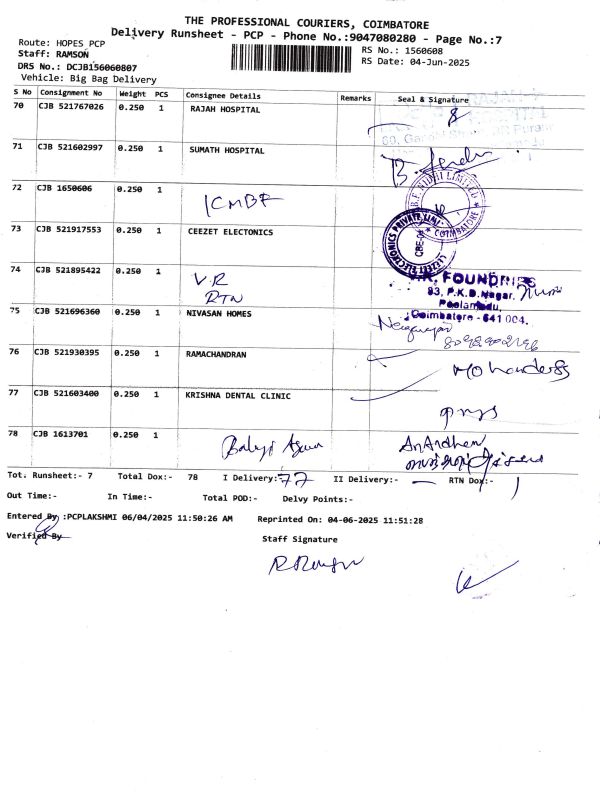 THE PROFESSIONAL COURIERS, COIMBATORE
Delivery Runsheet - PCP - Phone No.:9047080280 - Page No.:7
Route: HOPES_PCP
Staff: RAMSON
RS No.: 1560608
DRS No.: DCJB156060807
RS Date: 04-Jun-2025
Vehicle: Big Bag Delivery
S No Consignment No Weight PCS Consignee Details Remarks Seal & Signature
70 CJB 521767026 0.250 1 RAJAH HOSPITAL
71 CJB 521602997 0.250 1 SUMATH HOSPITAL
72 CJB 1650606 0.250 1 ICMBF
B.F. NIDHI LIMITED * COIMBATORE *
73 CJB 521917553 0.250 1 CEEZET ELECTONICS
CEEZET ELECTRONICS PRIVATE LIMITED
74 CJB 521895422 0.250 1 VR
RTN
V.R. FOUNDRIES
93, P.K.D.Nagar,
Peelamedu,
Coimbatore - 641 004.
75 CJB 521696360 0.250 1 NIVASAN HOMES
76 CJB 521930395 0.250 1 RAMACHANDRAN
77 CJB 521603400 0.250 1 KRISHNA DENTAL CLINIC
78 CJB 1613701 0.250 1
Tot. Runsheet:- 7 Total Dox:- 78 I Delivery:- 77 II Delivery:- — RTN Dox:- 1
Out Time:- In Time:- Total POD:- Delvy Points:-
Entered By :PCPLAKSHMI 06/04/2025 11:50:26 AM Reprinted On: 04-06-2025 11:51:28
Verified By
Staff Signature